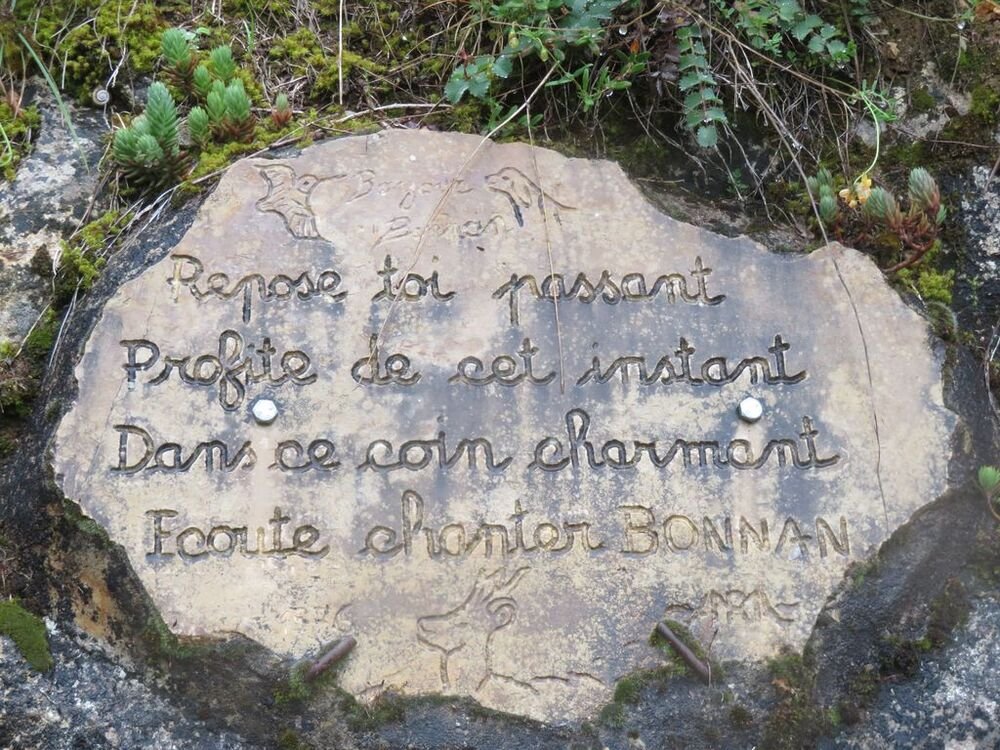 Bonnan
Repose toi passant
Profite de cet instant
Dans ce coin charmant
Ecoute chanter BONNAN